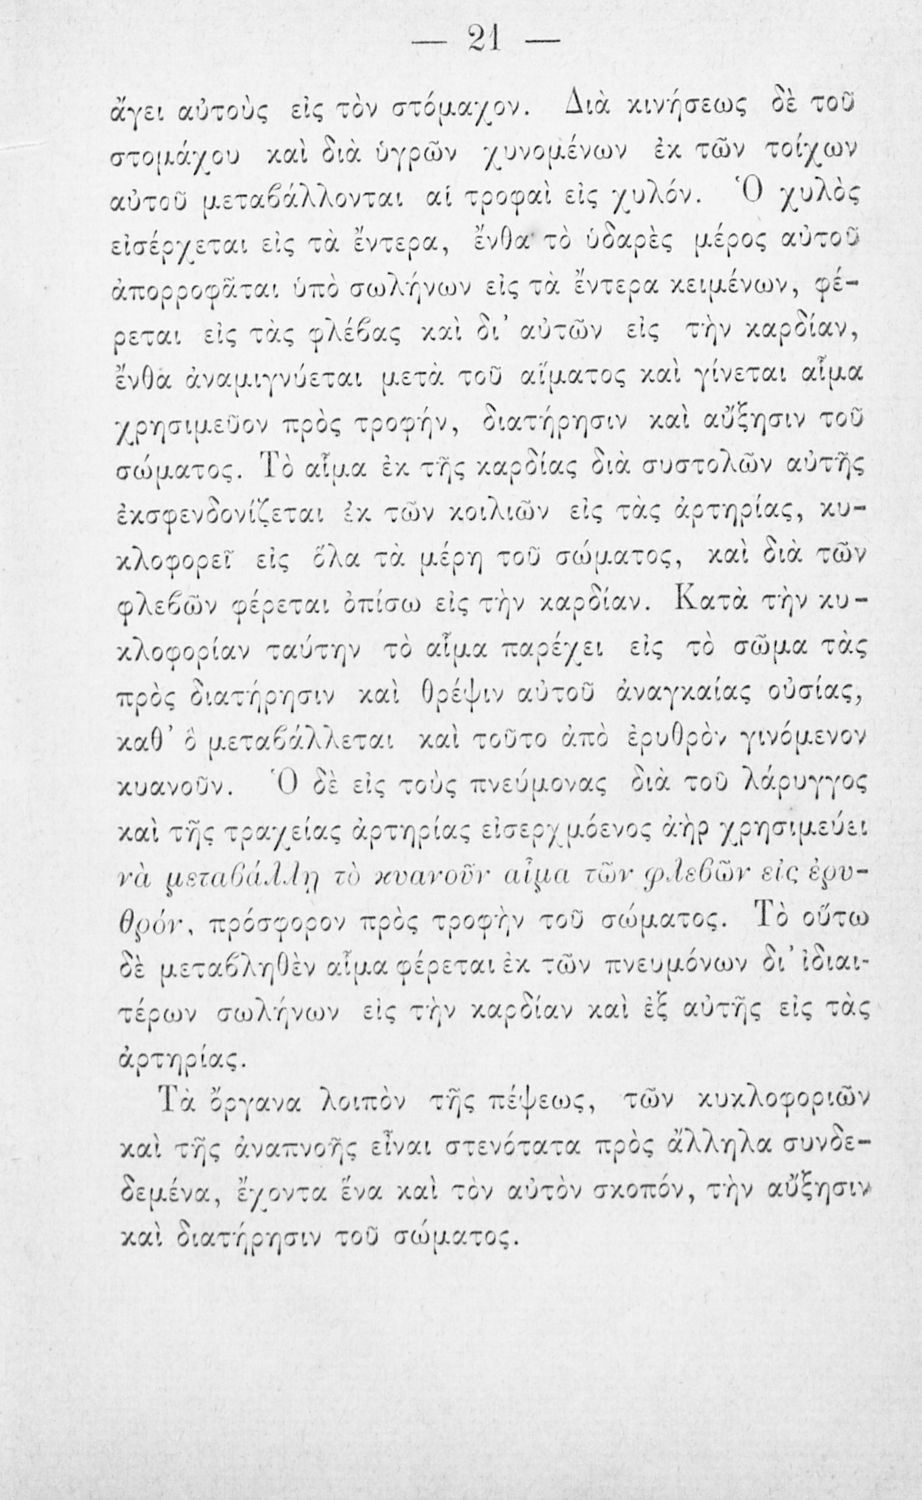 — 21 —
ἄγει αὐτοὺς εἰς τὸν στόμαχον. Διὰ κινήσεως δὲ τοῦ
στομάχου καὶ διὰ ὑγρῶν χυνομένων ἐκ τῶν τοίχων
αὐτοῦ μεταβάλλονται αἱ τροφαὶ εἰς χυλόν. Ὁ χυλὸς
εἰσέρχεται εἰς τὰ ἔντερα, ἔνθα τὸ ὑδαρὲς μέρος αὐτοῦ
ἀπορροφᾶται ὑπὸ σωλήνων εἰς τὰ ἔντερα κειμένων, φέ-
ρεται εἰς τὰς φλέβας καὶ δι᾽ αὐτῶν εἰς τὴν καρδίαν,
ἔνθα ἀναμιγνύεται μετὰ τοῦ αἵματος καὶ γίνεται αἷμα
χρησιμεῦον πρὸς τροφήν, διατήρησιν καὶ αὔξησιν τοῦ
σώματος. Τὸ αἷμα ἐκ τῆς καρδίας διὰ συστολῶν αὐτῆς
ἐκσφενδονίζεται ἐκ τῶν κοιλιῶν εἰς τὰς ἀρτηρίας, κυ-
κλοφορεῖ εἰς ὅλα τὰ μέρη τοῦ σώματος, καὶ διὰ τῶν
φλεβῶν φέρεται ὀπίσω εἰς τὴν καρδίαν. Κατὰ τὴν κυ-
κλοφορίαν ταύτην τὸ αἷμα παρέχει εἰς τὸ σῶμα τὰς
πρὸς διατήρησιν καὶ θρέψιν αὐτοῦ ἀναγκαίας οὐσίας,
καθ᾽ ὃ μεταβάλλεται καὶ τοῦτο ἀπὸ ἐρυθρὸν γινόμενον
κυανοῦν. Ὁ δὲ εἰς τοὺς πνεύμονας διὰ τοῦ λάρυγγος
καὶ τῆς τραχείας ἀρτηρίας εἰσερχμόενος ἀὴρ χρησιμεύει
νὰ μεταβάλλῃ τὸ κυανοῦν αἷμα τῶν φλεβῶν εἰς ἐρυ-
θρόν, πρόσφορον πρὸς τροφὴν τοῦ σώματος. Τὸ οὕτω
δὲ μεταβληθὲν αἷμα φέρεται ἐκ τῶν πνευμόνων δι᾽ ἰδιαι-
τέρων σωλήνων εἰς τὴν καρδίαν καὶ ἐξ αὐτῆς εἰς τὰς
ἀρτηρίας.
Τὰ ὄργανα λοιπὸν τῆς πέψεως, τῶν κυκλοφοριῶν
καὶ τῆς ἀναπνοῆς εἶναι στενότατα πρὸς ἄλληλα συνδε-
δεμένα, ἔχοντα ἕνα καὶ τὸν αὐτὸν σκοπόν, τὴν αὔξησιν
καὶ διατήρησιν τοῦ σώματος.